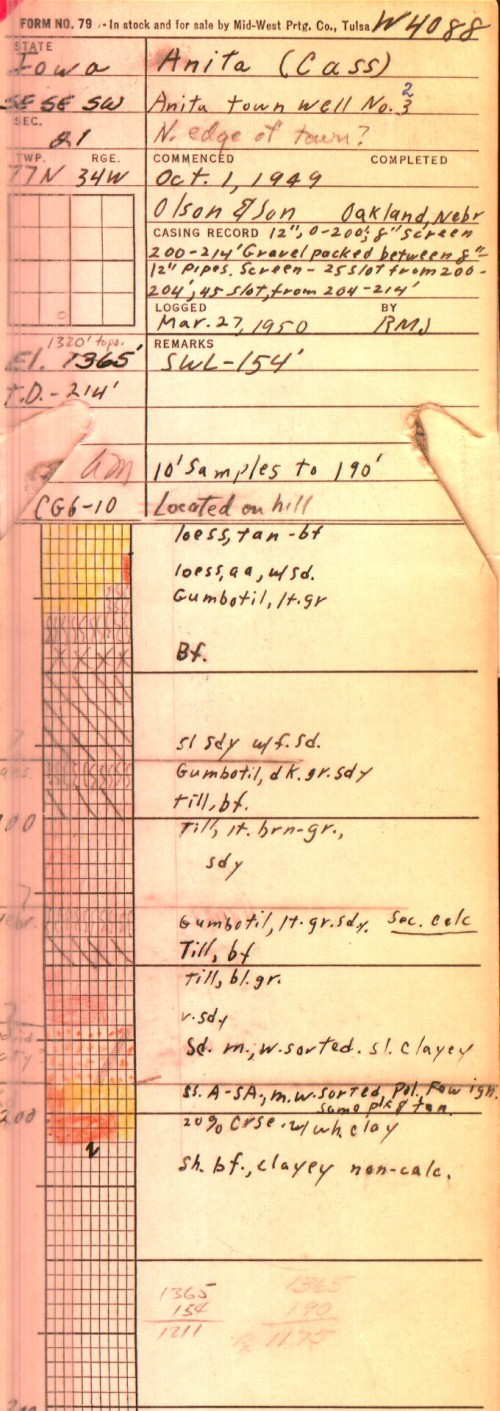 FORM NO. 79 - In stock and for sale by Mid-West Prtg. Co., Tulsa W4088
STATE
Iowa Anita (Cass)
SE SE SW Anita town well No. 3 2
SEC.
21 N. edge of town?
TWP. RGE. COMMENCED COMPLETED
77N 34W Oct. 1, 1949
Olson & Son Oakland, Nebr
CASING RECORD 12", 0-200', 8" screen
200-214' Gravel packed between 8"-
12" pipes. Screen - 25 slot from 200-
204', 45 slot, from 204-214'
LOGGED BY
Mar. 27, 1950 RMJ
1320' topo. REMARKS
El. 1365' SWL-154'
T.D. - 214'
10' Samples to 190'
CG6-10 Located on hill
loess, tan-bf
loess, aa, w/sd.
Gumbotil, lt. gr
Bf.
sl sdy w/f. sd.
Gumbotil, dk. gr. sdy
till, bf.
100 Till, lt. brn-gr.,
sdy
Gumbotil, lt. gr. sdy. Sec. calc
Till, bf
till, bl. gr.
v. sdy
Sd. m., w. sorted. sl. clayey
ss. A-SA., m. w. sorted, Pol, Few ign.
some pk & tan.
200 20% Crse. w/ wh. clay
Sh. bf., clayey non-calc.
1365 1365
154 190
1211 1175